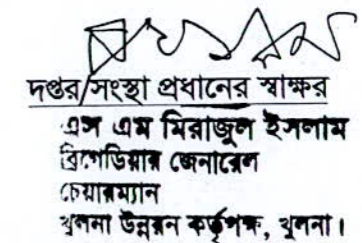 দপ্তর/সংস্থা প্রধানের স্বাক্ষর
এস এম মিরাজুল ইসলাম
ব্রিগেডিয়ার জেনারেল
চেয়ারম্যান
খুলনা উন্নয়ন কর্তৃপক্ষ, খুলনা।